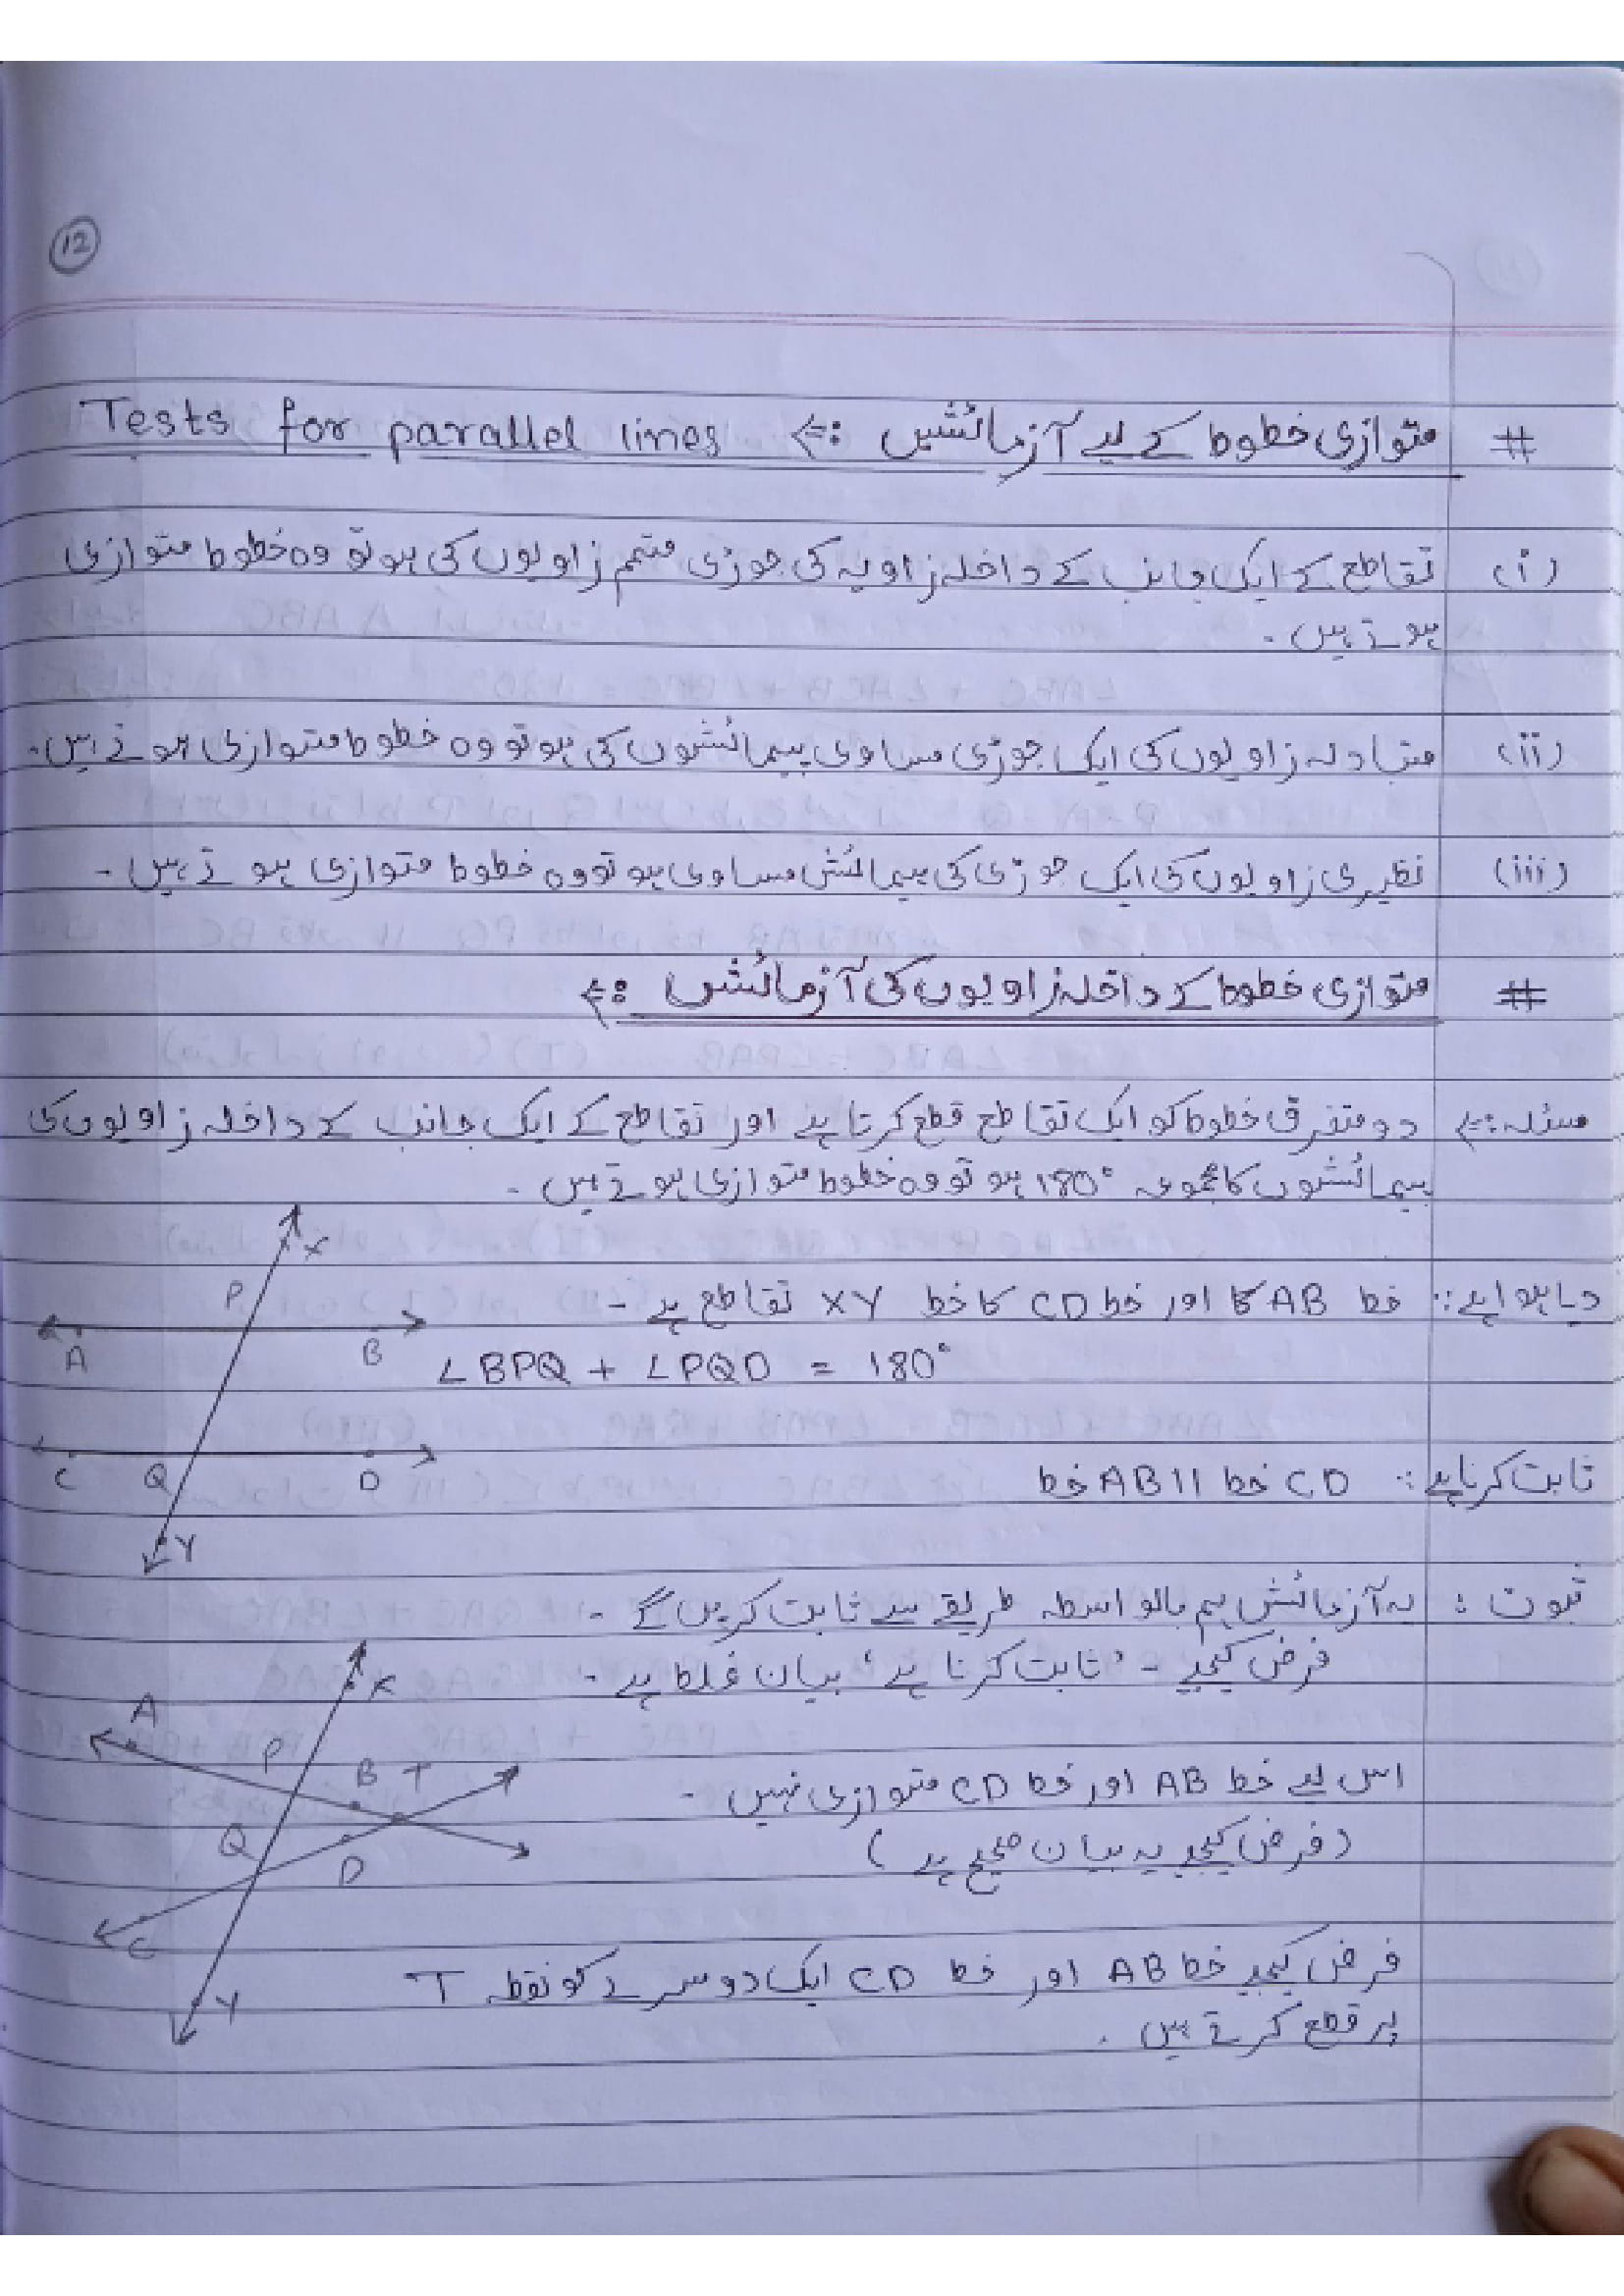 12
# متوازی خطوط کے لیے آزمائشیں :⇐ Tests for parallel lines
(i) تقاطع کے ایک جانب کے داخلہ زاویہ کی جوڑی متمم زاویوں کی ہو تو وہ خطوط متوازی
ہوتے ہیں ۔
(ii) متبادلہ زاویوں کی ایک جوڑی مساوی پیمائشوں کی ہو تو وہ خطوط متوازی ہوتے ہیں۔
(iii) نظیری زاویوں کی ایک جوڑی کی پیمائش مساوی ہو تو وہ خطوط متوازی ہوتے ہیں ۔
# متوازی خطوط کے داخلہ زاویوں کی آزمائش :⇐
مسئلہ :⇐ دو متفرق خطوط کو ایک تقاطع قطع کرتا ہے اور تقاطع کے ایک جانب کے داخلہ زاویوں کی
پیمائشوں کا مجموعہ 180° ہو تو وہ خطوط متوازی ہوتے ہیں ۔
X
P
دیا ہوا ہے :. خط AB کا اور خط CD کا خط XY تقاطع ہے ۔
A B
∠BPQ + ∠PQD = 180°
C Q D
ثابت کرنا ہے :. CD خط || AB خط
Y
ثبوت : یہ آزمائش ہم بالواسطہ طریقے سے ثابت کریں گے ۔
فرض کیجیے - 'ثابت کرنا ہے' بیان غلط ہے ۔
X
A
P B T
اس لیے خط AB اور خط CD متوازی نہیں ۔
Q D
(فرض کیجیے یہ بیان صحیح ہے)
C
فرض کیجیے خط AB اور خط CD ایک دوسرے کو نقطہ T
Y
پر قطع کرتے ہیں ۔